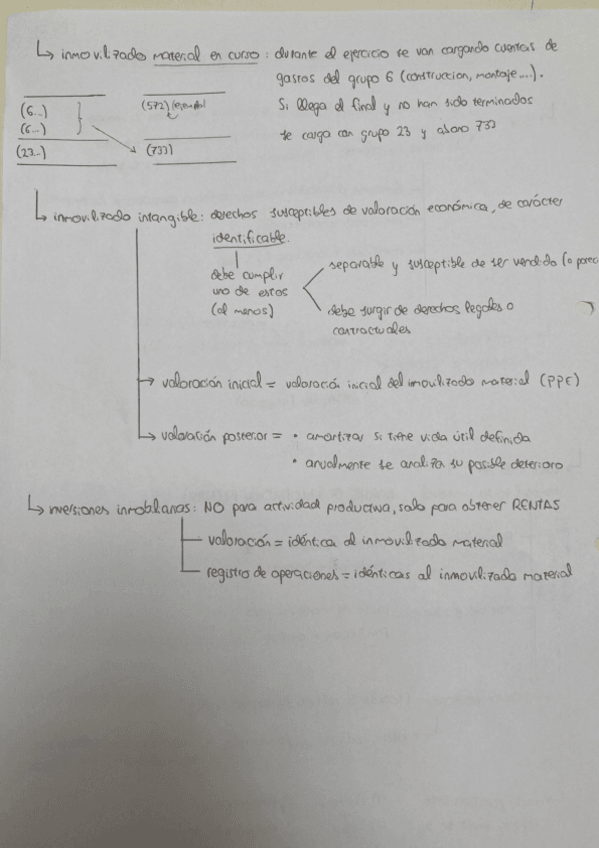 inmovilizado material en curso: durante el ejercicio se van cargando cuentas de
gastos del grupo 6 (construccion, montaje...).
Si llega al final y no han sido terminados
se carga con grupo 23 y abono 733
(6...) (572) (ejemplo)
(6...)
(23...) (733)
inmovilizado intangible: derechos susceptibles de valoración económica, de carácter
identificable.
debe cumplir
uno de estos
(al menos)
separable y susceptible de ser vendido (o parec
debe surgir de derechos legales o
contractuales
valoración inicial = valoración inicial del imovilizado material (PPE)
valoración posterior = • amortizar si tiene vida útil definida
• anualmente se analiza su posible deterioro
inversiones inmobiliarias: NO para actividad productiva, solo para obtener RENTAS
valoración = idéntica al inmovilizado material
registro de operaciones = idénticas al inmovilizado material